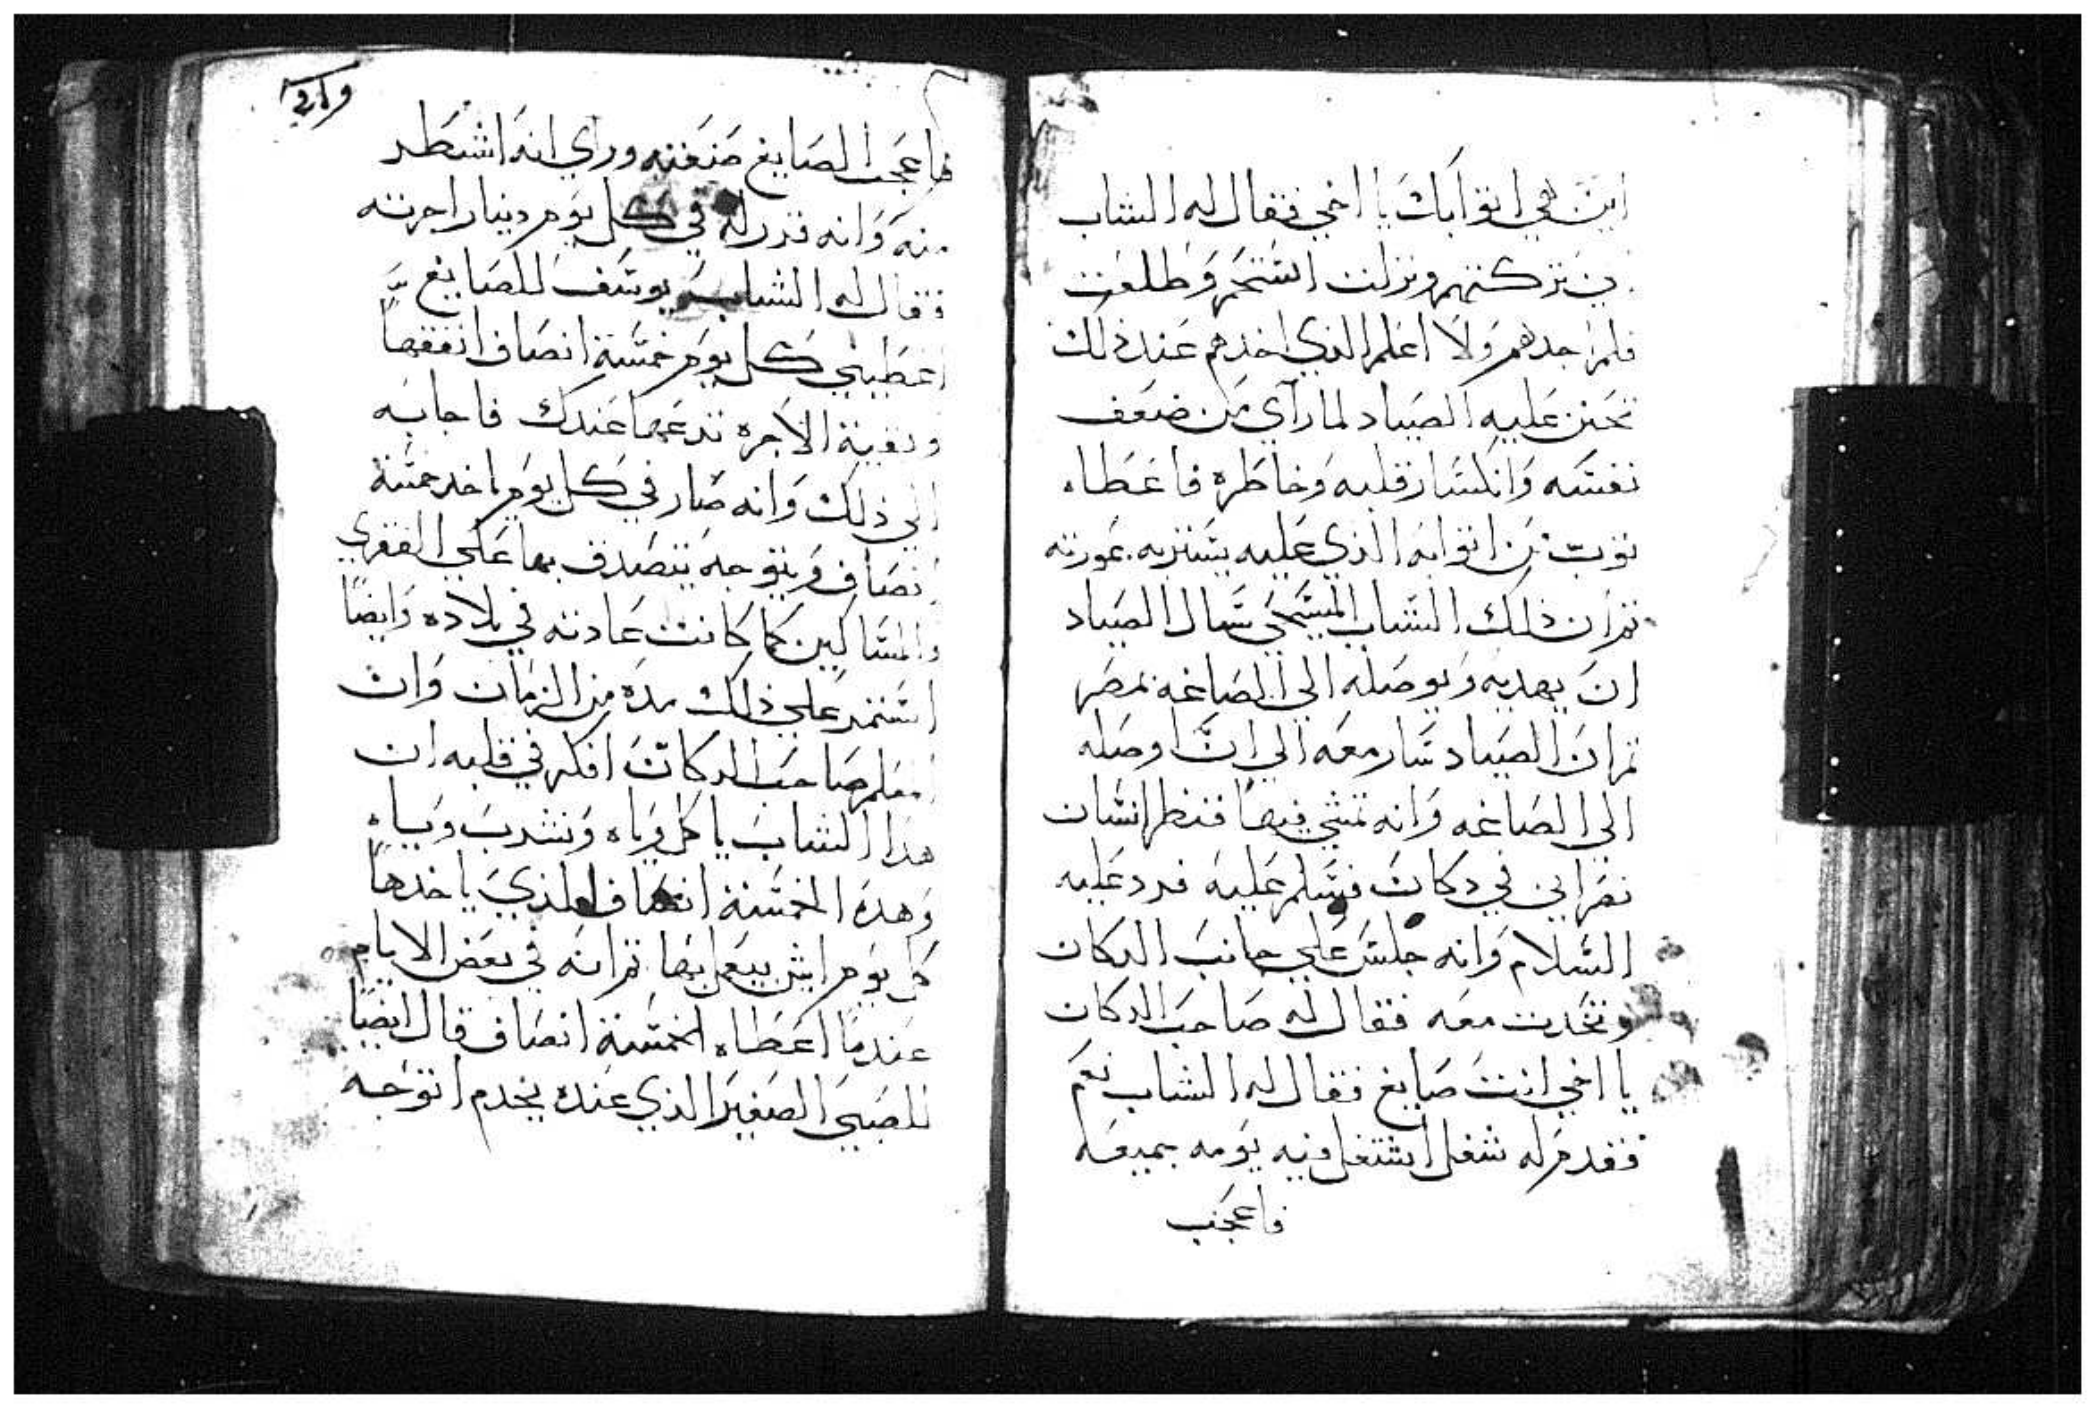 اين هي اتوابك يا اخي فقال له الشاب
تركتهم ونزلت استحم وطلعت
فلم اجدهم ولا اعلم الذي اخدهم عند ذلك
تحنن عليه الصياد لما رآي من ضعف
نفسه وانكسار قلبه وخاطره فاعطاه
توب من اتوابه الذي عليه يستر به عورته
تم ان ذلك الشاب المسيحي سال الصياد
ان يهديه ويوصله الي الصاغه بمصر
تم ان الصياد سار معه الي ان اوصله
الي الصاغه وانه تمشي فيها فنظر انسان
نصراني في دكان فسلم عليه فرد عليه
السلام وانه جلس علي جانب الدكان
وتحدت معه فقال له صاحب الدكان
يا اخي انت صايغ فقال له الشاب نعم
فقدم له شغل اشتغل فيه يومه جميعه
فاعجب
فاعجب الصايغ صنعته ورآي انه اشطر
منه وانه قدر له في كل يوم دينار اجرته
فقال له الشاب يوسف للصايغ
اعطيني كل يوم خمسة انصاف انفقها
وبقية الاجره تدعها عندك فاجابه
الي ذلك وانه صار في كل يوم ياخد خمسة
انصاف ويتوجه يتصدق بها علي الفقري
والمساكين كما كانت عادته في بلاده وايضًا
استمر علي ذلك مدة من الزمان وان
المعلم صاحب الدكان افكر في قلبه ان
هدا الشاب ياكل وياه ونشرب وياه
وهده الخمسة انصاف الذي ياخدها
كل يوم ايش بيعمل بها تم انه في بعض الايام
عندما اعطاه الخمسة انصاف قال ايضًا
للصبي الصغير الذي عنده يخدم اتوجه